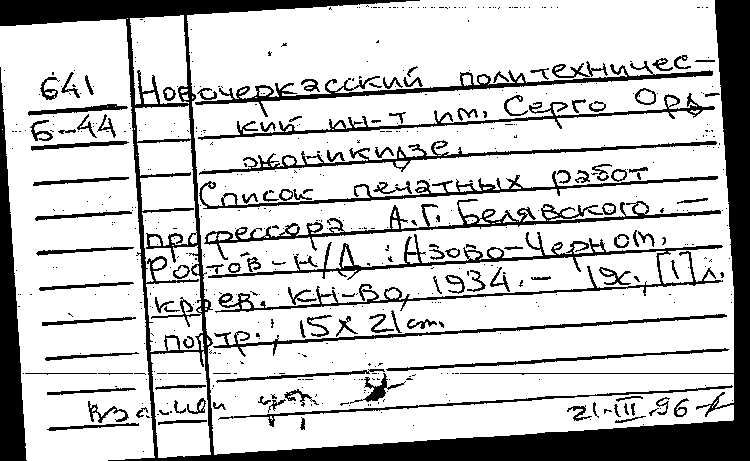 641 Новочеркасский политехничес-
Б-44 кий ин-т им. Серго Орд-
жоникидзе.
Список печатных работ
профессора А.Г. Белявского. —
Ростов-н/Д. : Азово-Черном.
краев. кн-во, 1934. — 19с., [1] л.
портр.; 15 X 21 cm.
взамен
21.III.96